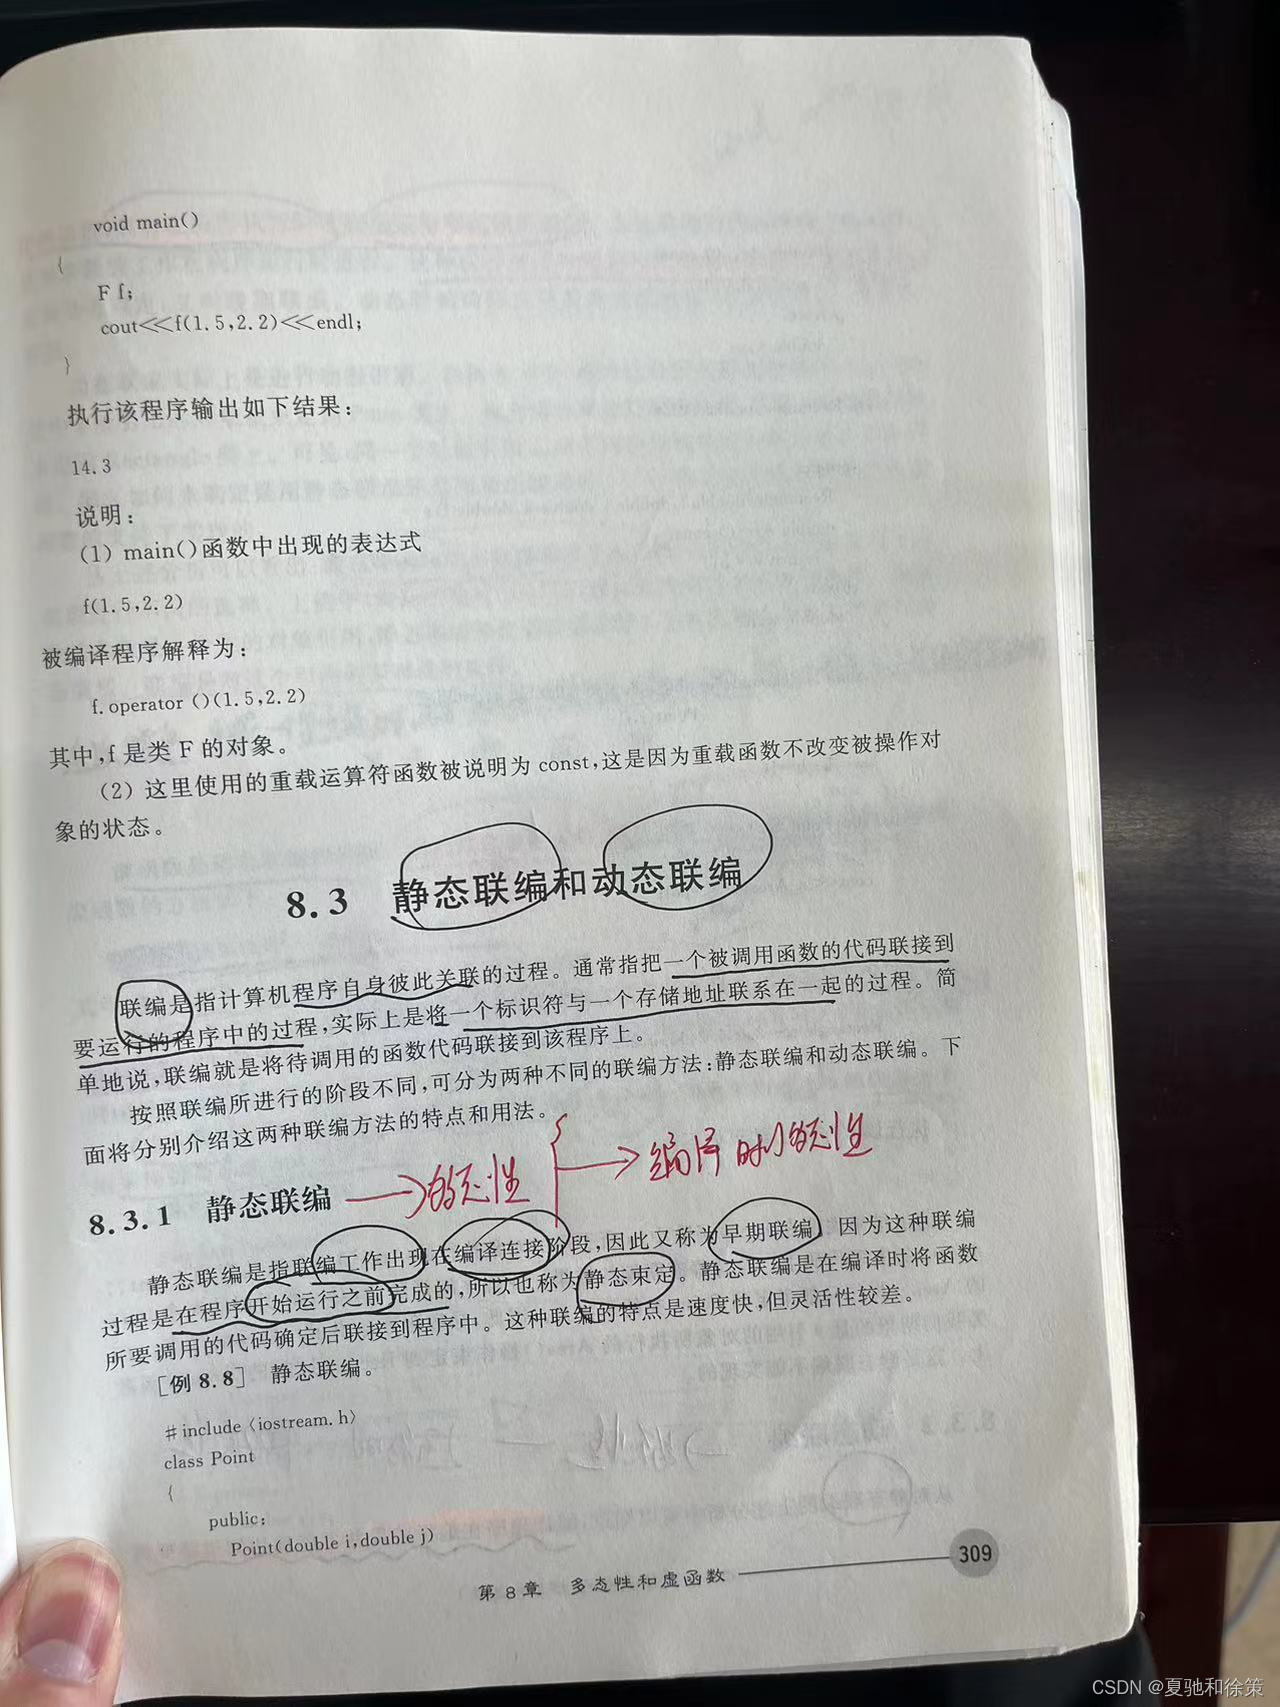 void main()
{
F f;
cout<<f(1.5,2.2)<<endl;
}
执行该程序输出如下结果：
14.3
说明：
(1) main()函数中出现的表达式
f(1.5,2.2)
被编译程序解释为：
f.operator ()(1.5,2.2)
其中,f 是类 F 的对象。
(2) 这里使用的重载运算符函数被说明为 const,这是因为重载函数不改变被操作对
象的状态。
8.3 静态联编和动态联编
联编是指计算机程序自身彼此关联的过程。通常指把一个被调用函数的代码联接到
要运行的程序中的过程,实际上是将一个标识符与一个存储地址联系在一起的过程。简
单地说,联编就是将待调用的函数代码联接到该程序上。
按照联编所进行的阶段不同,可分为两种不同的联编方法:静态联编和动态联编。下
面将分别介绍这两种联编方法的特点和用法。
8.3.1 静态联编
编译时
静态联编是指联编工作出现在编译连接阶段,因此又称为早期联编。因为这种联编
过程是在程序开始运行之前完成的,所以也称为静态束定。静态联编是在编译时将函数
所要调用的代码确定后联接到程序中。这种联编的特点是速度快,但灵活性较差。
[例 8.8] 静态联编。
#include <iostream.h>
class Point
{
public:
Point(double i,double j)
第 8 章 多态性和虚函数 309
CSDN @夏驰和徐策